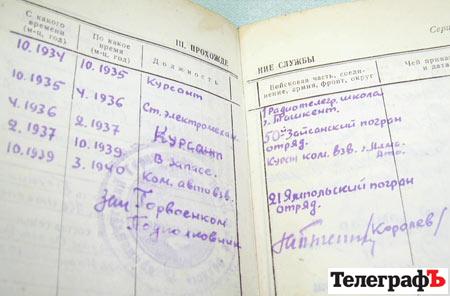 III. ПРОХОЖДЕ
С какого времени (м-ц, год)
По какое время (м-ц, год)
Должность
10.1934 10.1935 Курсант
10.1935 4.1936 Ст. электромехан.
4.1936 2.1937 Курсант
2.1937 10.1939 В запасе.
10.1939 3.1940 Ком. автовзв.
Зам Горвоенком
Подполковник
Сери
НИЕ СЛУЖБЫ
Войсковая часть, соеди-
нение, армия, фронт, округ
Чей прика
и дата
1 Радиотелегр. школа
г. Ташкент.
50 Зайсанский погран
отряд.
Курсы ком. взв. г. Алма-
Ата.
21 Ямпольский погран
отряд.
/Королев/
ТелеграфЪ